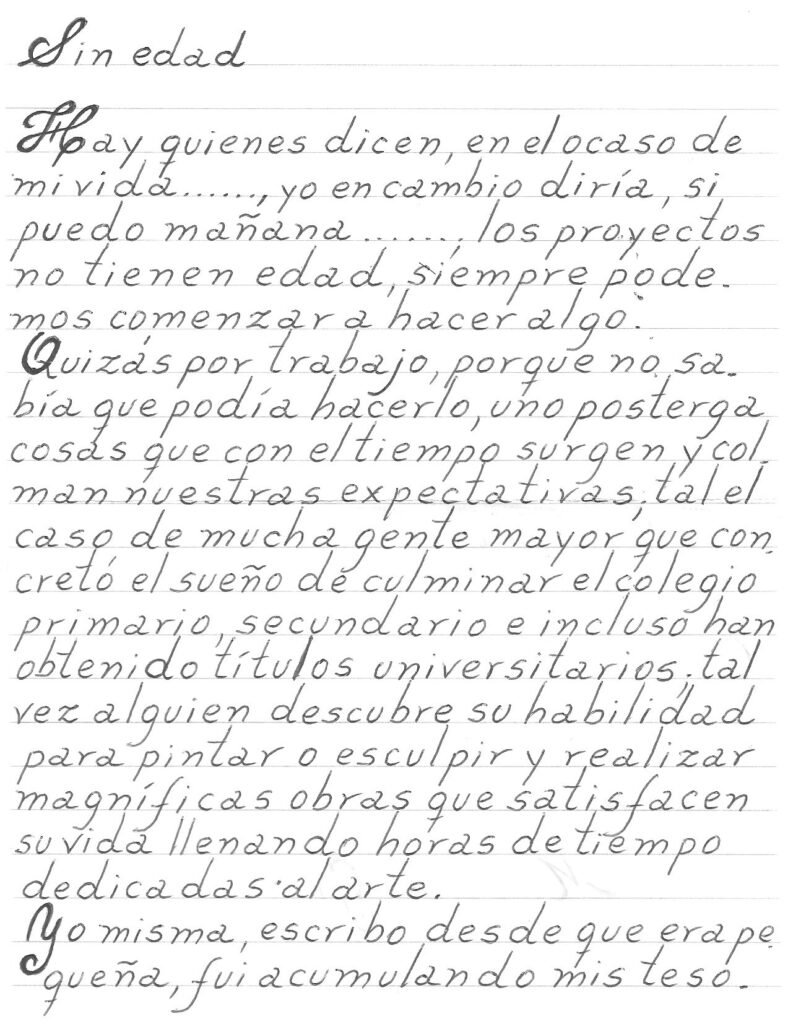 Sin edad
Hay quienes dicen, en el ocaso de
mi vida......, yo en cambio diría, si
puedo mañana ......., los proyectos
no tienen edad, siempre pode-
mos comenzar a hacer algo.
Quizás por trabajo, porque no sa-
bía que podía hacerlo, uno posterga
cosas que con el tiempo surgen y col-
man nuestras expectativas, tal el
caso de mucha gente mayor que con-
cretó el sueño de culminar el colegio
primario, secundario e incluso han
obtenido títulos universitarios; tal
vez alguien descubre su habilidad
para pintar o esculpir y realizar
magníficas obras que satisfacen
su vida llenando horas de tiempo
dedicadas al arte.
Yo misma, escribo desde que era pe-
queña, fui acumulando mis teso-